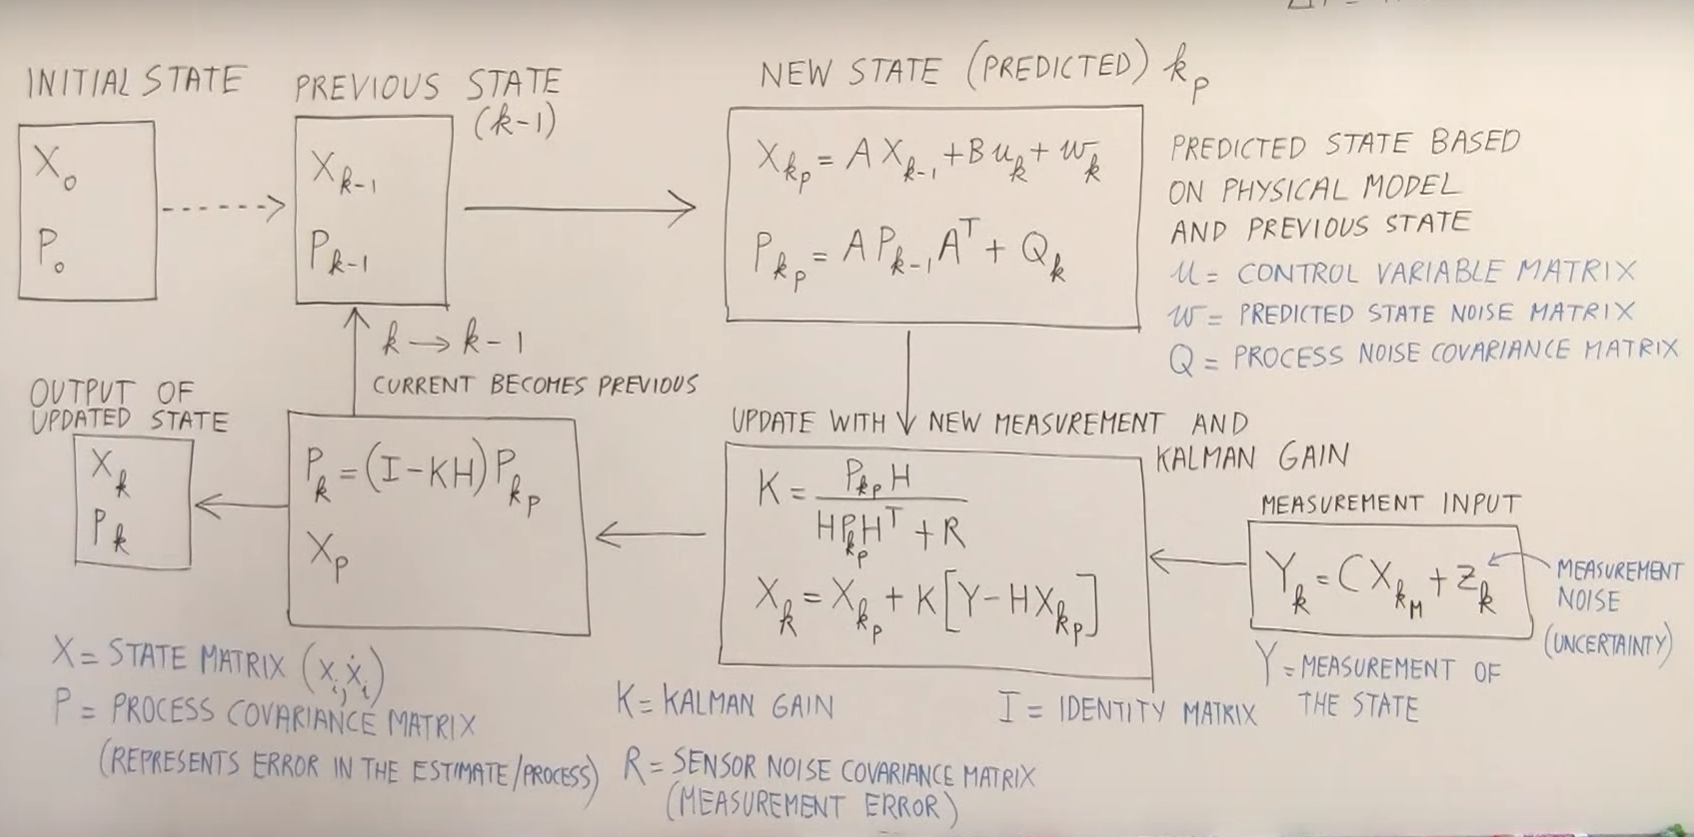 INITIAL STATE
X₀
P₀
PREVIOUS STATE
(k-1)
Xₖ₋₁
Pₖ₋₁
NEW STATE (PREDICTED) kₚ
X_{k_p} = A X_{k-1} + B u_k + w_k
P_{k_p} = A P_{k-1} A^T + Q_k
PREDICTED STATE BASED
ON PHYSICAL MODEL
AND PREVIOUS STATE
u = CONTROL VARIABLE MATRIX
w = PREDICTED STATE NOISE MATRIX
Q = PROCESS NOISE COVARIANCE MATRIX
k → k-1
CURRENT BECOMES PREVIOUS
OUTPUT OF
UPDATED STATE
X_k
P_k
P_k = (I - KH) P_{k_p}
X_p
UPDATE WITH NEW MEASUREMENT AND
KALMAN GAIN
K = P_{k_p} H / H P_{k_p} H^T + R
X_k = X_{k_p} + K [Y - H X_{k_p}]
MEASUREMENT INPUT
Y_k = C X_{k_M} + Z_k
MEASUREMENT
NOISE
(UNCERTAINTY)
Y = MEASUREMENT OF
THE STATE
X = STATE MATRIX (x_i, ẋ_i)
P = PROCESS COVARIANCE MATRIX
(REPRESENTS ERROR IN THE ESTIMATE/PROCESS)
K = KALMAN GAIN
I = IDENTITY MATRIX
R = SENSOR NOISE COVARIANCE MATRIX
(MEASUREMENT ERROR)